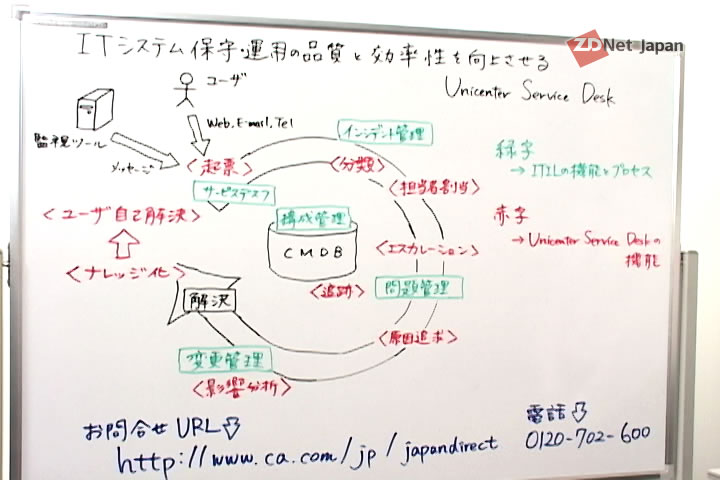 ZDNet Japan
ITシステム保守・運用の品質と効率性を向上させる
Unicenter Service Desk
ユーザ
監視ツール
Web, E-mail, Tel
メッセージ
インシデント管理
<起票>
<分類>
<担当者割当>
サービスデスク
緑字
→ ITILの機能とプロセス
<ユーザ自己解決>
構成管理
CMDB
赤字
→ Unicenter Service Deskの
機能
<エスカレーション>
<ナレッジ化>
<追跡>
問題管理
解決
<原因追求>
変更管理
<影響分析>
お問合せURL
http://www.ca.com/jp/japandirect
電話
0120-702-600